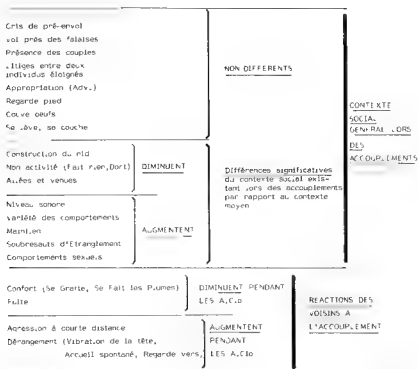 Cris de pré-envol
vol près des falaises
Présence des couples
Litiges entre deux
individus éloignés
Appropriation (Adv.)
Regarde pied
Couve oeufs
Se lève, se couche
NON DIFFERENTS
Construction du nid
Non activité (Fait rien,Dort)
Allées et venues
DIMINUENT
Niveau sonore
Variété des comportements
Maintien
Soubresauts d'Etranglement
Comportements sexuels
AUGMENTENT
Différences significatives
du contexte social exis-
tant lors des accouplements
par rapport au contexte
moyen
CONTEXTE
SOCIAL
GENERAL LORS
DES
ACCOUPLEMENTS
Confort (Se Gratte, Se Fait les Plumes)
Fuite
DIMINUENT PENDANT
LES A.Clo
Agression à courte distance
Dérangement (Vibration de la tête,
Accueil spontané, Regarde vers,
AUGMENTENT
PENDANT
LES A.Clo
REACTIONS DES
VOISINS A
L'ACCOUPLEMENT